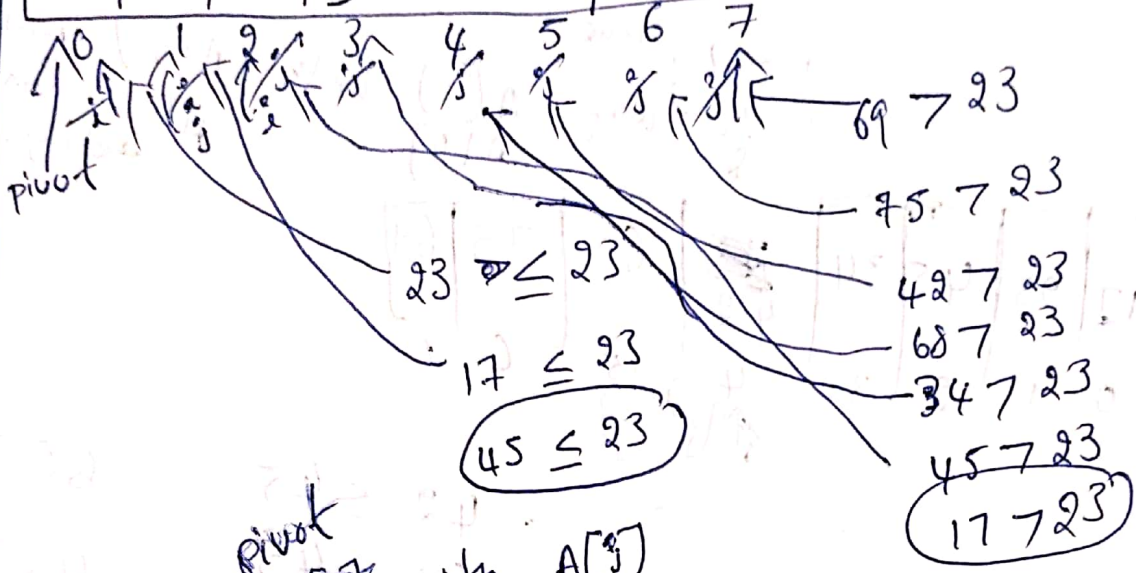 0 1 2 3 4 5 6 7
i i j i j j j j j
69 > 23
pivot
75 > 23
23 ≤ 23
42 > 23
68 > 23
17 ≤ 23
34 > 23
45 ≤ 23
45 > 23
17 > 23
pivot
A[j]